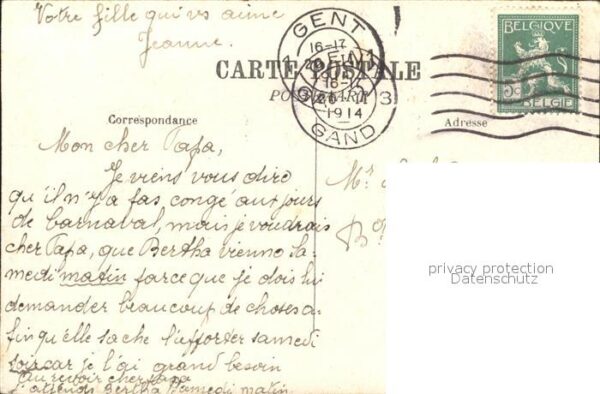 Votre fille qui vs aime
Jeanne.
GENT
16-17
1914
GAND
BELGIQUE
5c
BELGIE
CARTE POSTALE
Correspondance
Adresse
Mon cher Papa,
Je viens vous dire
qu'il n'y a pas congé aux jours
de barnaval, mais je voudrais
cher Papa, que Bertha vienne sa-
medi matin parce que je dois lui
demander beaucoup de choses a-
fin qu'elle sache l'apporter samedi
soir car je l'ai grand besoin
Au revoir cher papa
J'attends Bertha Samedi matin
Mr
privacy protection
Datenschutz